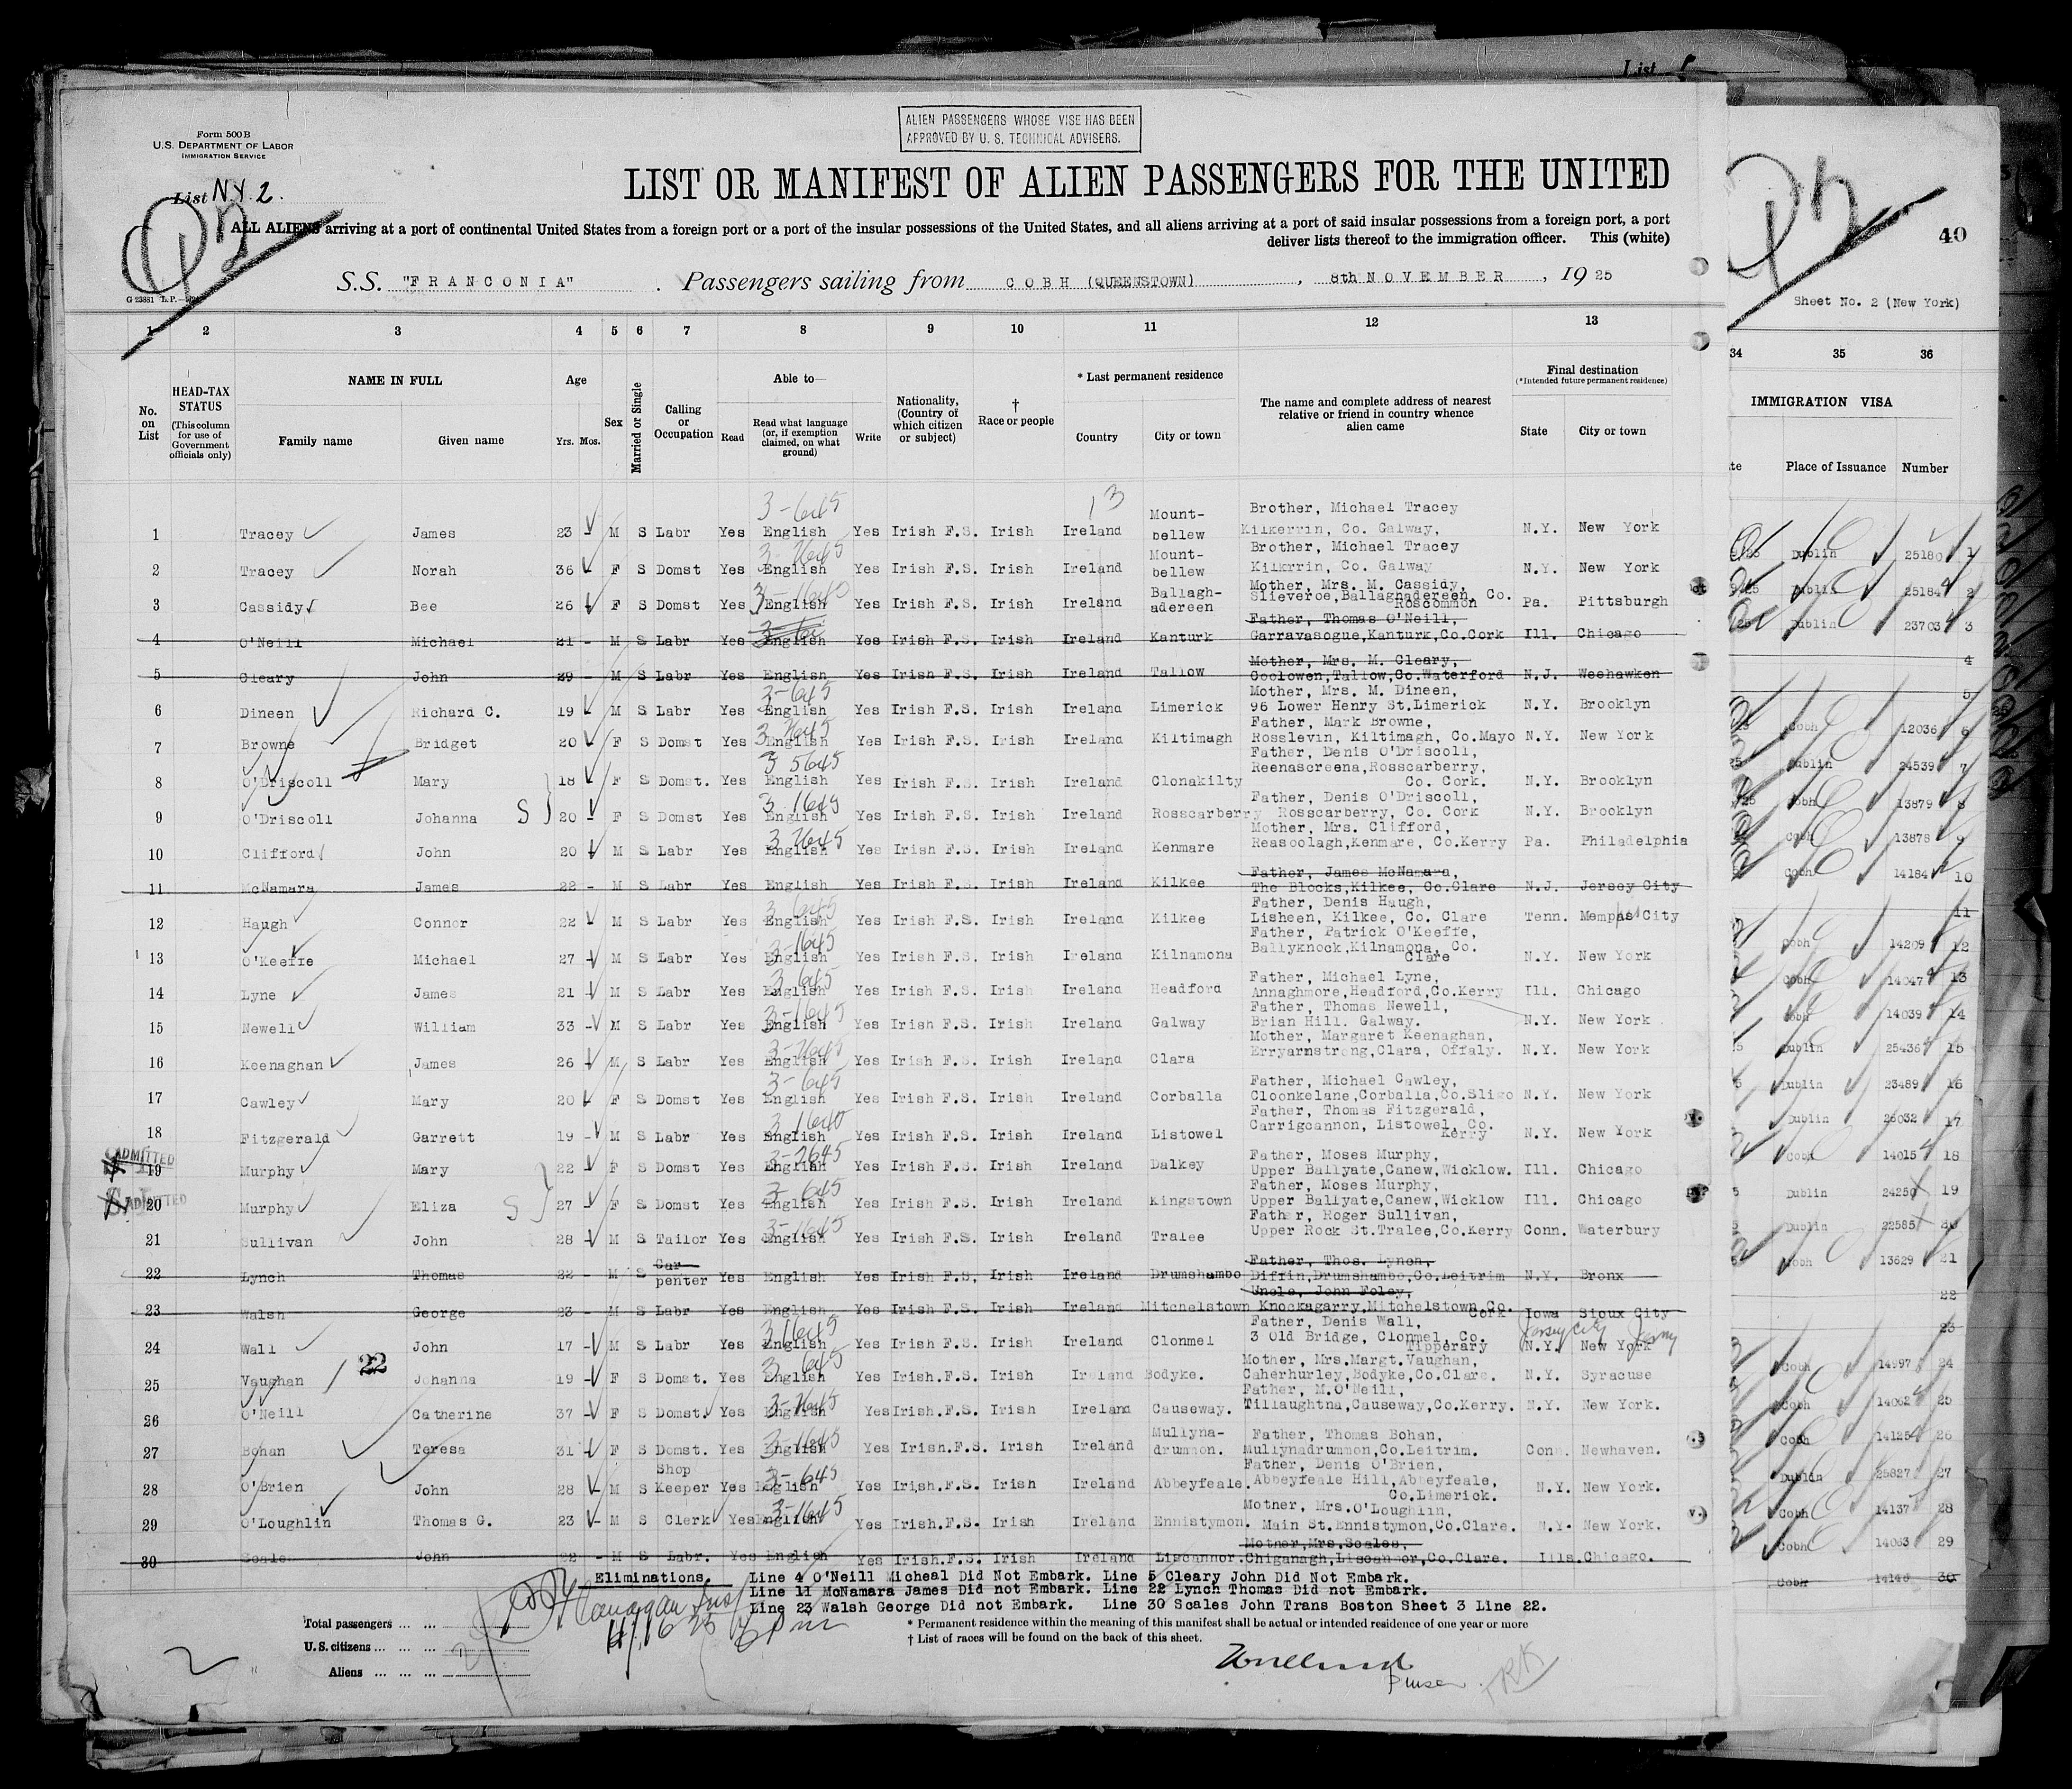 List
ALIEN PASSENGERS WHOSE VISE HAS BEEN
APPROVED BY U. S. TECHNICAL ADVISERS.
Form 500B
U.S. DEPARTMENT OF LABOR
IMMIGRATION SERVICE
List N.Y. 2.
LIST OR MANIFEST OF ALIEN PASSENGERS FOR THE UNITED
ALL ALIENS arriving at a port of continental United States from a foreign port or a port of the insular possessions of the United States, and all aliens arriving at a port of said insular possessions from a foreign port, a port
deliver lists thereof to the immigration officer. This (white)
40
S.S. "FRANCONIA" . Passengers sailing from COBH (QUEENSTOWN) , 8th NOVEMBER , 19 25
Sheet No. 2 (New York)
G 23881 L.P.
1 2 3 4 5 6 7 8 9 10 11 12 13 34 35 36
No. on List
HEAD-TAX STATUS (This column for use of Government officials only)
NAME IN FULL
Family name Given name
Age
Yrs. Mos.
Sex
Married or Single
Calling or Occupation
Able to—
Read Read what language (or, if exemption claimed, on what ground) Write
Nationality, (Country of which citizen or subject)
† Race or people
* Last permanent residence
Country City or town
The name and complete address of nearest relative or friend in country whence alien came
Final destination
(*Intended future permanent residence)
State City or town
IMMIGRATION VISA
te Place of Issuance Number
1 Tracey James 23 M S Labr Yes English Yes Irish F.S. Irish Ireland Mount-bellew Brother, Michael Tracey Kilkerrin, Co. Galway, N.Y. New York Dublin 25180 1
2 Tracey Norah 36 F S Domst Yes English Yes Irish F.S. Irish Ireland Mount-bellew Brother, Michael Tracey Kilkrrin, Co. Galway N.Y. New York Dublin 25184 2
3 Cassidy Bee 26 F S Domst Yes English Yes Irish F.S. Irish Ireland Ballagh-adereen Mother, Mrs. M. Cassidy, Slieveroe, Ballaghadereen, Co. Roscommon Pa. Pittsburgh Dublin 23703 3
4 O'Neill Michael 21 - M S Labr Yes English Yes Irish F.S. Irish Ireland Kanturk Father, Thomas O'Neill, Garravasogue,Kanturk,Co.Cork Ill. Chicago 4
5 Cleary John 29 - M S Labr Yes English Yes Irish F.S. Irish Ireland Tallow Mother, Mrs. M. Cleary, Coolowen,Tallow,Co.Waterford N.J. Weehawken 5
6 Dineen Richard C. 19 M S Labr Yes English Yes Irish F.S. Irish Ireland Limerick Mother, Mrs. M. Dineen, 96 Lower Henry St.Limerick N.Y. Brooklyn Cobh 12036 6
7 Browne Bridget 20 F S Domst Yes English Yes Irish F.S. Irish Ireland Kiltimagh Father, Mark Browne, Rosslevin, Kiltimagh, Co.Mayo N.Y. New York Dublin 24539 7
8 O'Driscoll Mary 18 F S Domst. Yes English Yes Irish F.S. Irish Ireland Clonakilty Father, Denis O'Driscoll, Reenascreena,Rosscarberry, Co. Cork. N.Y. Brooklyn Cobh 13879 8
9 O'Driscoll Johanna S 20 F S Domst Yes English Yes Irish F.S. Irish Ireland Rosscarberry Father, Denis O'Driscoll, Rosscarberry, Co. Cork N.Y. Brooklyn Cobh 13878 9
10 Clifford John 20 M S Labr Yes English Yes Irish F.S. Irish Ireland Kenmare Mother, Mrs. Clifford, Reascolagh,Kenmare, Co.Kerry Pa. Philadelphia Cobh 14184 10
11 McNamara James 22 - M S Labr Yes English Yes Irish F.S. Irish Ireland Kilkee Father, James McNamara, The Blocks,Kilkee, Co.Clare N.J. Jersey City 11
12 Haugh Connor 22 M S Labr Yes English Yes Irish F.S. Irish Ireland Kilkee Father, Denis Haugh, Lisheen, Kilkee, Co. Clare Tenn. Mempas City Cobh 14209 12
13 O'Keeffe Michael 27 M S Labr Yes English Yes Irish F.S. Irish Ireland Kilnamona Father, Patrick O'Keeffe, Ballyknock,Kilnamona, Co. Clare N.Y. New York Cobh 14047 13
14 Lyne James 21 M S Labr Yes English Yes Irish F.S. Irish Ireland Headford Father, Michael Lyne, Annaghmore,Headford,Co.Kerry Ill. Chicago Cobh 14039 14
15 Newell William 33 M S Labr Yes English Yes Irish F.S. Irish Ireland Galway Father, Thomas Newell, Brian Hill. Galway. N.Y. New York Dublin 25436 15
16 Keenaghan James 26 M S Labr Yes English Yes Irish F.S. Irish Ireland Clara Mother, Margaret Keenaghan, Erryarmstrong,Clara, Offaly. N.Y. New York Dublin 23489 16
17 Cawley Mary 20 F S Domst Yes English Yes Irish F.S. Irish Ireland Corballa Father, Michael Cawley, Cloonkelane,Corballa,Co.Sligo N.Y. New York Dublin 26032 17
18 Fitzgerald Garrett 19 M S Labr Yes English Yes Irish F.S. Irish Ireland Listowel Father, Thomas Fitzgerald, Carrigcannon, Listowel, Co. Kerry N.Y. New York Cobh 14015 18
ADMITTED 19 Murphy Mary 22 F S Domst Yes English Yes Irish F.S. Irish Ireland Dalkey Father, Moses Murphy, Upper Ballyate,Canew,Wicklow. Ill. Chicago Dublin 24250 19
ADMITTED 20 Murphy Eliza S 27 F S Domst Yes English Yes Irish F.S. Irish Ireland Kingstown Father, Moses Murphy, Upper Ballyate,Canew,Wicklow Ill. Chicago Dublin 22585 20
21 Sullivan John 28 M S Tailor Yes English Yes Irish F.S. Irish Ireland Tralee Father, Roger Sullivan, Upper Rock St.Tralee,Co.Kerry Conn. Waterbury Cobh 13629 21
22 Lynch Thomas 22 - M S Car-penter Yes English Yes Irish F.S. Irish Ireland Drumshambo Father, Thos. Lynch, Diffin,Drumshambo,Co.Leitrim N.Y. Bronx 22
23 Walsh George 23 - M S Labr Yes English Yes Irish F.S. Irish Ireland Mitchelstown Uncle, John Foley, Knockagarry,Mitchelstown,Co. Cork Iowa Sioux City 23
24 Wall John 17 M S Labr Yes English Yes Irish F.S. Irish Ireland Clonmel Father, Denis Wall, 3 Old Bridge, Clonmel, Co. Tipperary N.Y. New York Jersey City Cobh 14997 24
25 Vaughan 22 Johanna 19 F S Domst. Yes English Yes Irish.F.S. Irish Ireland Bodyke. Mother, Mrs.Margt.Vaughan, Caherhurley,Bodyke,Co.Clare. N.Y. Syracuse Cobh 14062 25
26 O'Neill Catherine 37 F S Domst. Yes English Yes Irish.F.S. Irish Ireland Causeway. Father, M.O'Neill, Tillaughtna,Causeway,Co.Kerry. N.Y. New York. Cobh 14125 26
27 Bohan Teresa 31 F S Domst. Yes English Yes Irish.F.S. Irish Ireland Mullyna-drummon. Father, Thomas Bohan, Mullynadrummon,Co.Leitrim. Conn. Newhaven. Dublin 25827 27
28 O'Brien John 28 M S Shop Keeper Yes English Yes Irish.F.S. Irish Ireland Abbeyfeale. Father, Denis O'Brien, Abbeyfeale Hill,Abbeyfeale, Co.Limerick. N.Y. New York. Cobh 14137 28
29 O'Loughlin Thomas G. 23 M S Clerk Yes English Yes Irish.F.S. Irish Ireland Ennistymon. Mother, Mrs.O'Loughlin, Main St.Ennistymon,Co.Clare. N.Y. New York. Cobh 14063 29
30 Scales John 22 - M S Labr. Yes English Yes Irish.F.S. Irish Ireland Liscannor. Mother,Mrs.Scales, Chiganagh,Liscannor,Co.Clare. Ills. Chicago. Cobh 14146 30
Eliminations. Line 4 O'Neill Micheal Did Not Embark. Line 5 Cleary John Did Not Embark.
Line 11 McNamara James Did not Embark. Line 22 Lynch Thomas Did not Embark.
Line 23 Walsh George Did not Embark. Line 30 Scales John Trans Boston Sheet 3 Line 22.
Total passengers ... ...
U.S. citizens ... ...
Aliens ... ... ...
* Permanent residence within the meaning of this manifest shall be actual or intended residence of one year or more
† List of races will be found on the back of this sheet.
Purser